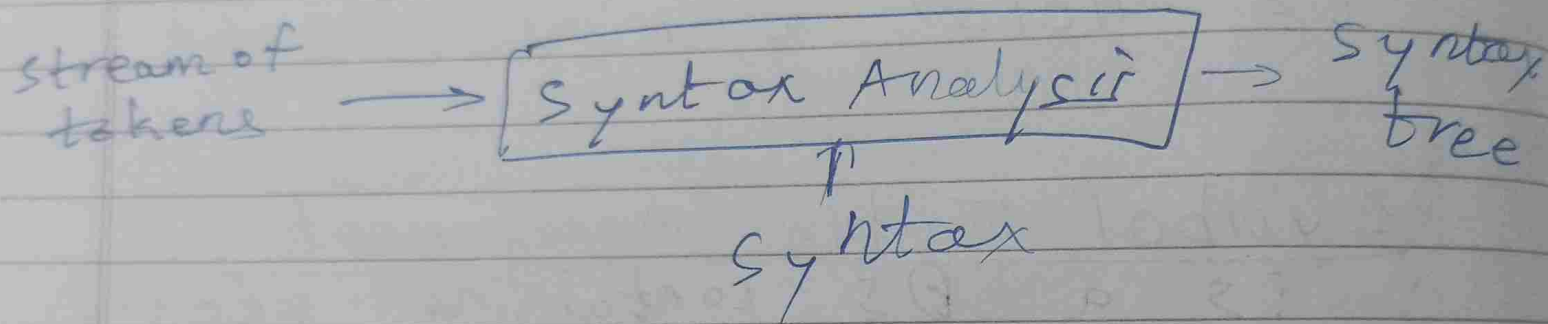 stream of
tokens
Syntax Analysis
Syntax
tree
Syntax